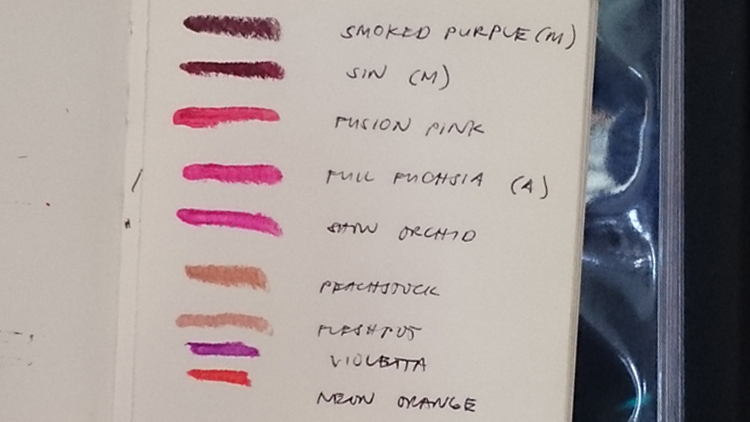 SMOKED PURPLE (M)
SIN (M)
FUSION PINK
FULL FUCHSIA (A)
SHOW ORCHID
PEACHSTOCK
FLESHPOT
VIOLETTA
NEON ORANGE